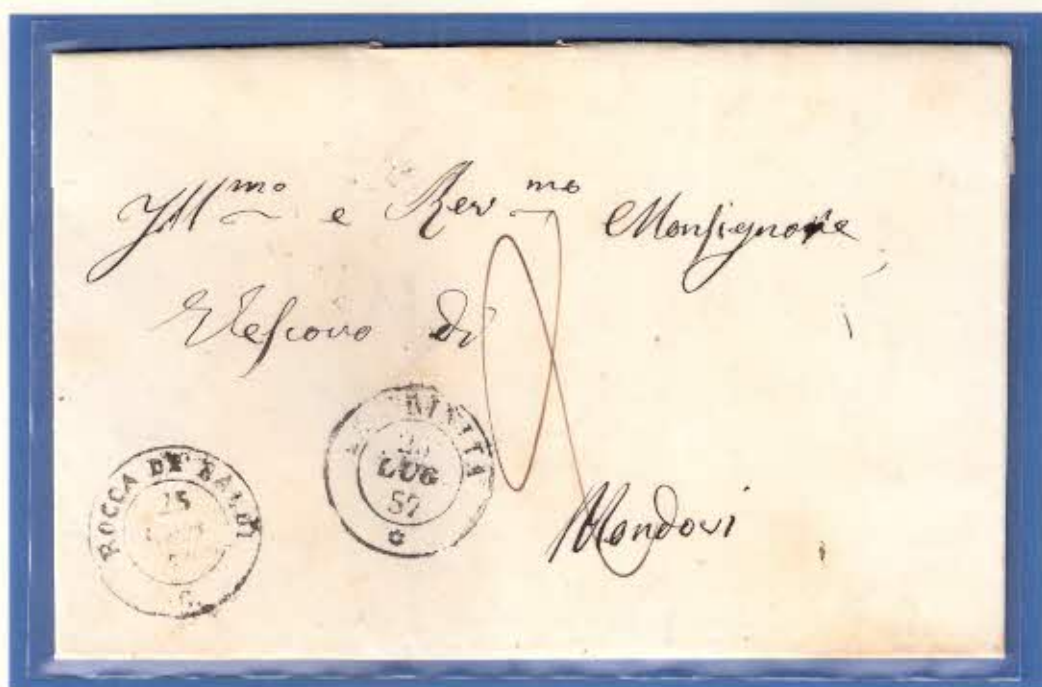 Ill.mo e Rev.mo Monsignore
Vescovo di
Mondovi
ROCCA DE' BALDI
25
TRINITÀ
LUG
57